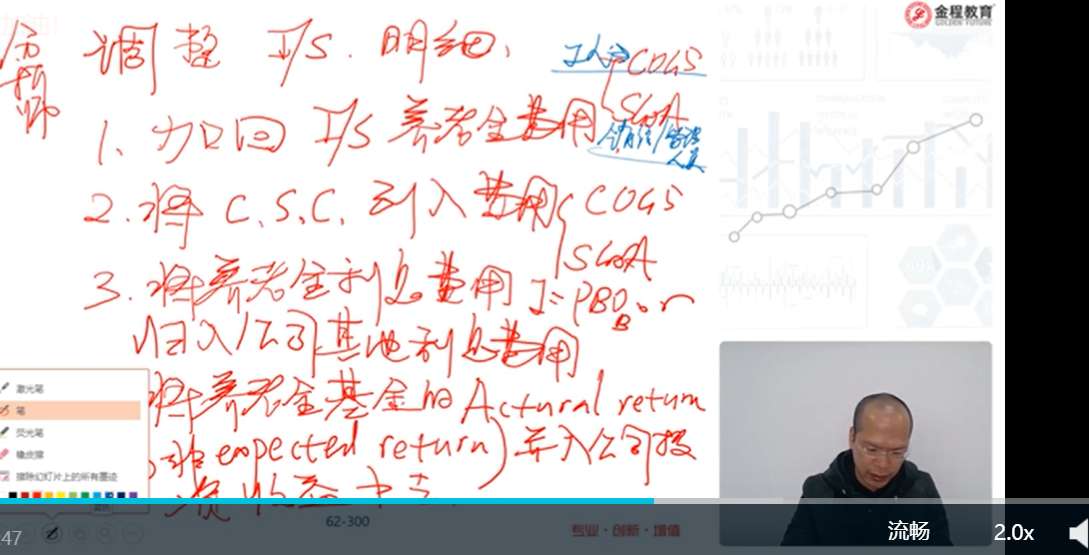 金程教育
GOLDEN FUTURE
分析师
调整 I/S. 明细.
工人 COGS
SG&A
1. 加回 I/S 养老金费用
销售/管理人员
2. 将 C.S.C. 列入费用 COGS
SG&A
3. 将养老金利息费用 I=PBO_B·r
归入公司其他利息费用
将养老金基金的 Actural return
(非expected return)并入公司投
资收益中去
激光笔
笔
荧光笔
橡皮擦
擦除幻灯片上的所有墨迹
62-300
专业·创新·增值
47
流畅
2.0x